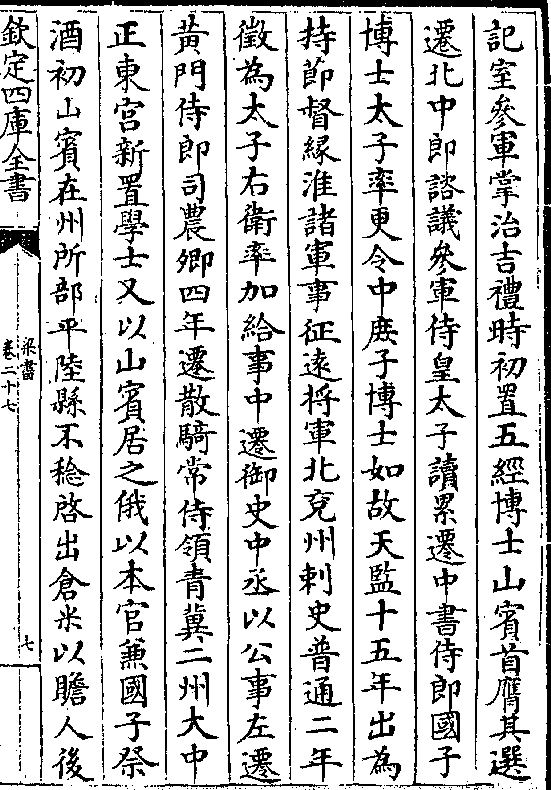 記室參軍掌治吉禮時初置五經博士山賓首膺其選
遷北中郎諮議參軍侍皇太子讀累遷中書侍郎國子
博士太子率更令中庶子博士如故天監十五年出為
持節督緣淮諸軍事征遠將軍北兗州刺史普通二年
徵為太子右衛率加給事中遷御史中丞以公事左遷
黃門侍郎司農卿四年遷散騎常侍領青冀二州大中
正東宮新置學士又以山賓居之俄以本官兼國子祭
酒初山賓在州所部平陸縣不稔啓出倉米以贍人後
欽定四庫全書
梁書
卷二十七
七